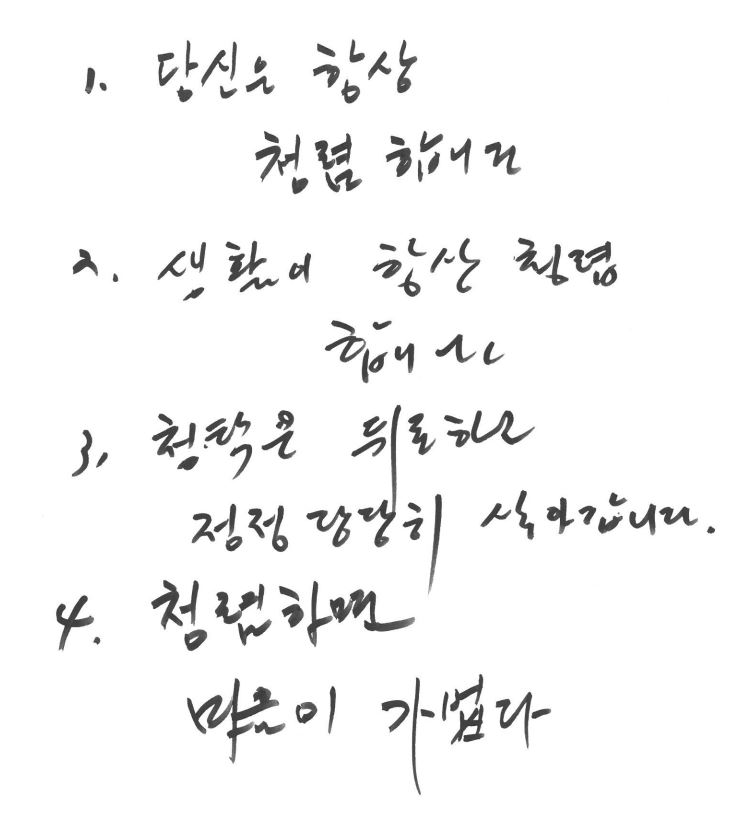 1. 당신은 항상
청렴 합니다
2. 생활이 항상 청렴
합니다
3, 청탁은 뒤로하고
정정 당당히 살아갑니다.
4. 청렴하면
마음이 가볍다